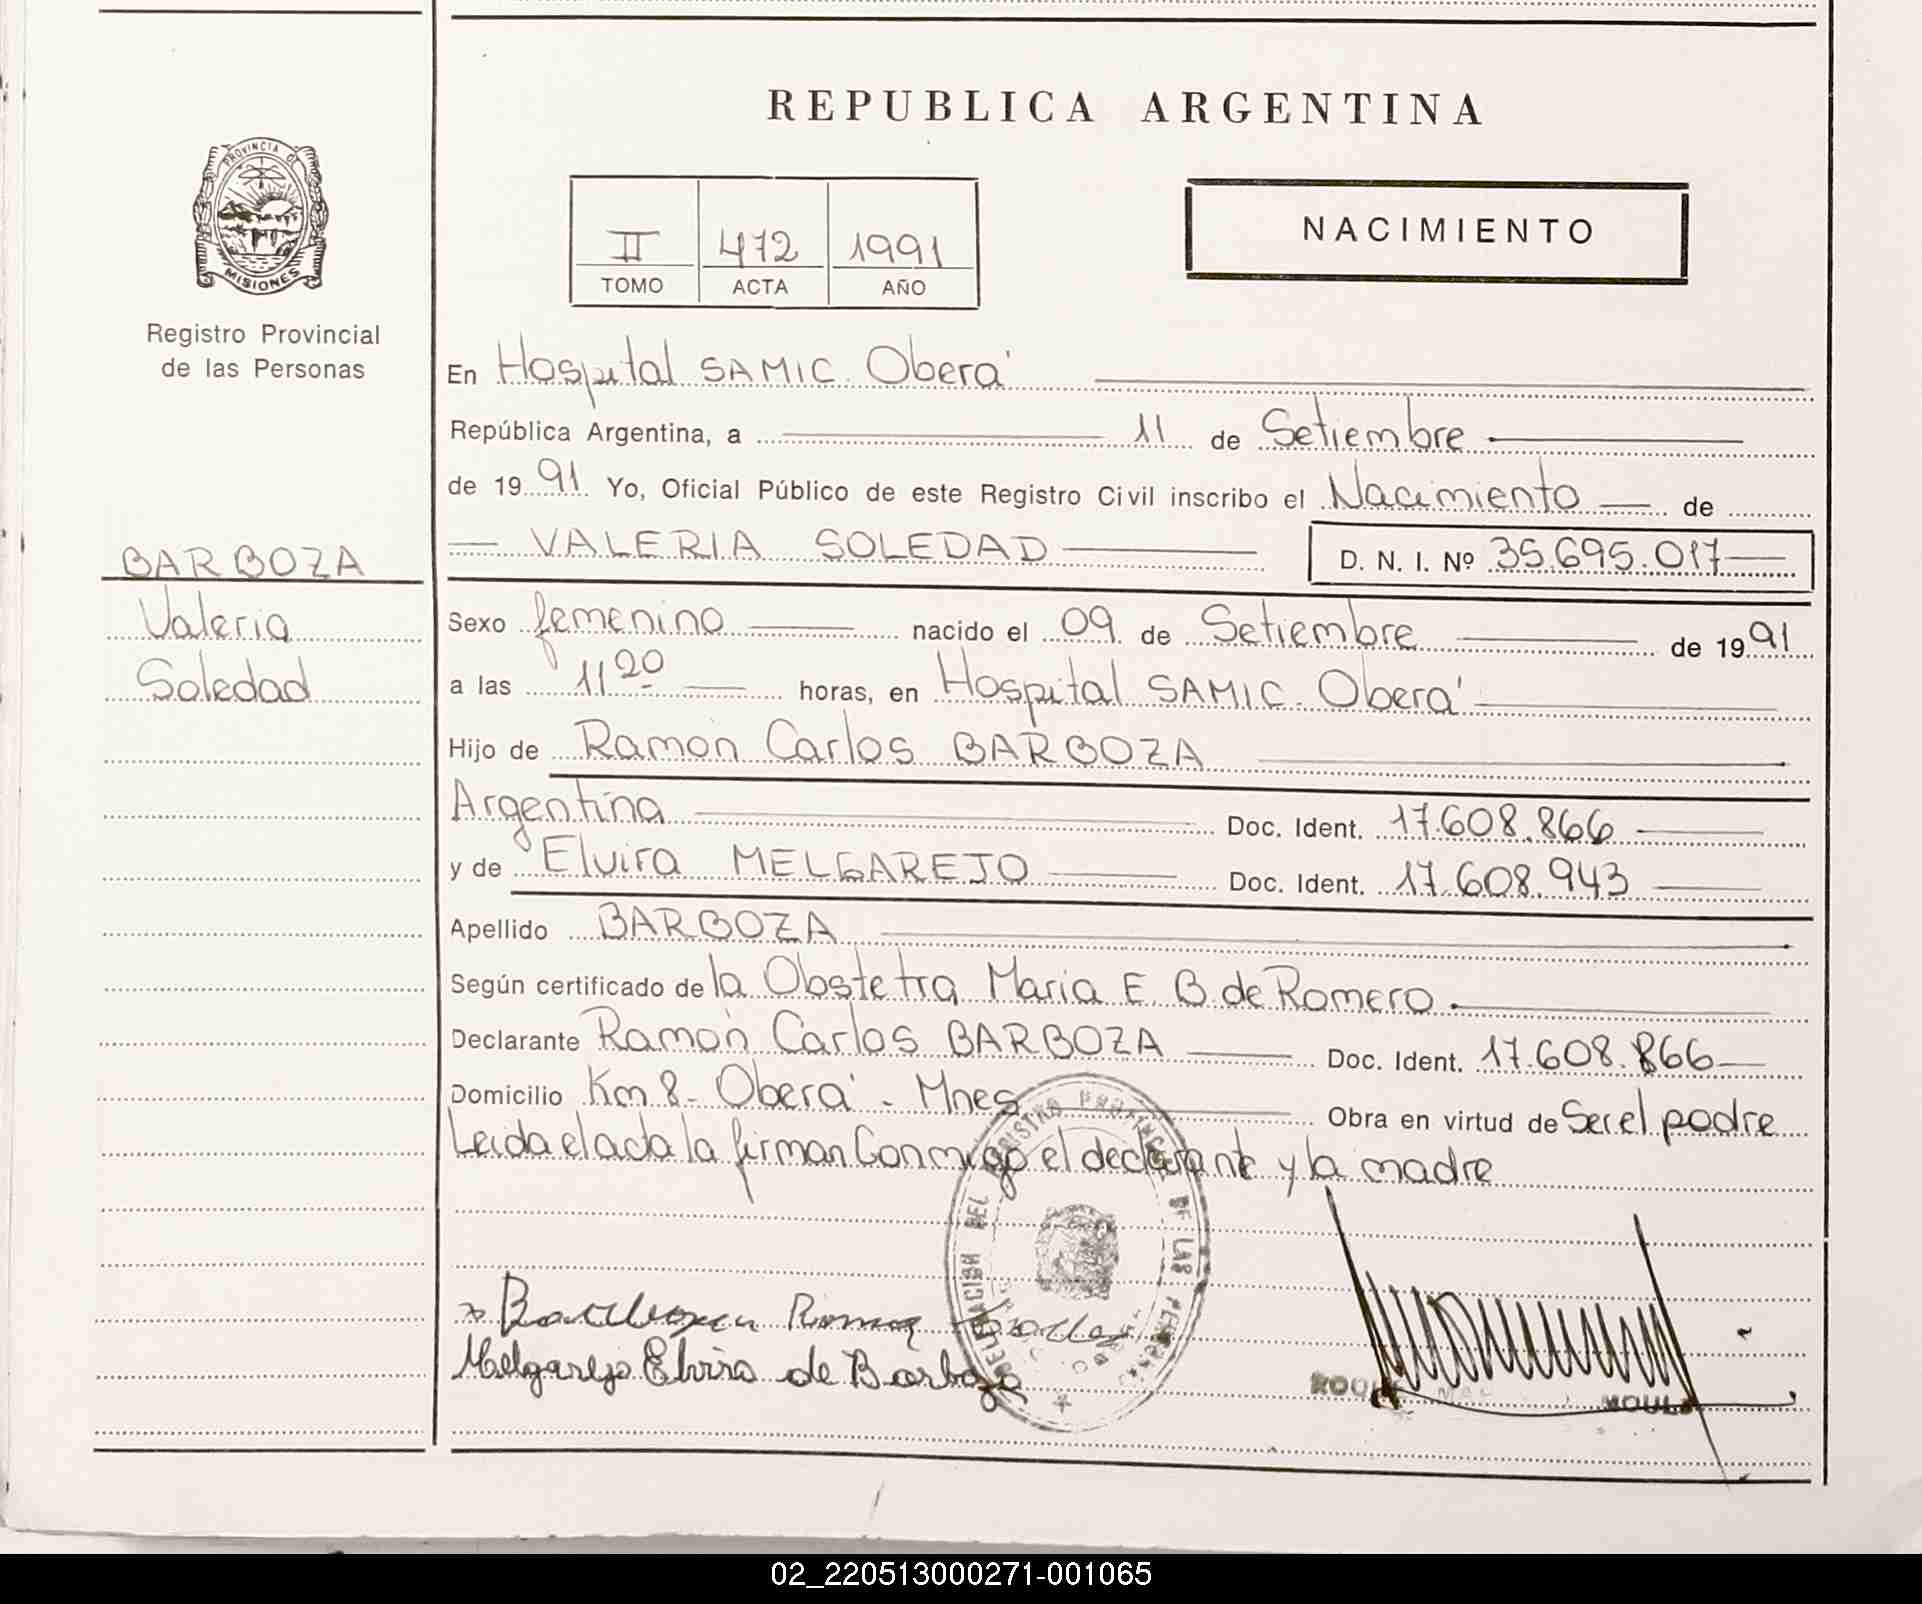 REPUBLICA ARGENTINA
PROVINCIA DE
MISIONES
Registro Provincial
de las Personas
II 472 1991
TOMO ACTA AÑO
NACIMIENTO
BARBOZA
Valeria
Soledad
En Hospital SAMIC. Oberá
República Argentina, a 11 de Setiembre
de 1991 Yo, Oficial Público de este Registro Civil inscribo el Nacimiento de
VALERIA SOLEDAD D. N. I. Nº 35.695.017
Sexo femenino nacido el 09 de Setiembre de 1991
a las 11 20 horas, en Hospital SAMIC. Oberá
Hijo de Ramón Carlos BARBOZA
Argentina Doc. Ident. 17.608.866
y de Elvira MELGAREJO Doc. Ident. 17.608.943
Apellido BARBOZA
Según certificado de la Obstetra Maria E. B. de Romero
Declarante Ramón Carlos BARBOZA Doc. Ident. 17.608.866
Domicilio Km 8 - Oberá - Mnes Obra en virtud de Ser el padre
Leida el acta la firman Conmigo el declarante y la madre
DELEGACION DEL REGISTRO PROVINCIAL DE LAS PERSONAS
Barboza Ramon Carlos
Melgarejo Elvira de Barboza
02_220513000271-001065